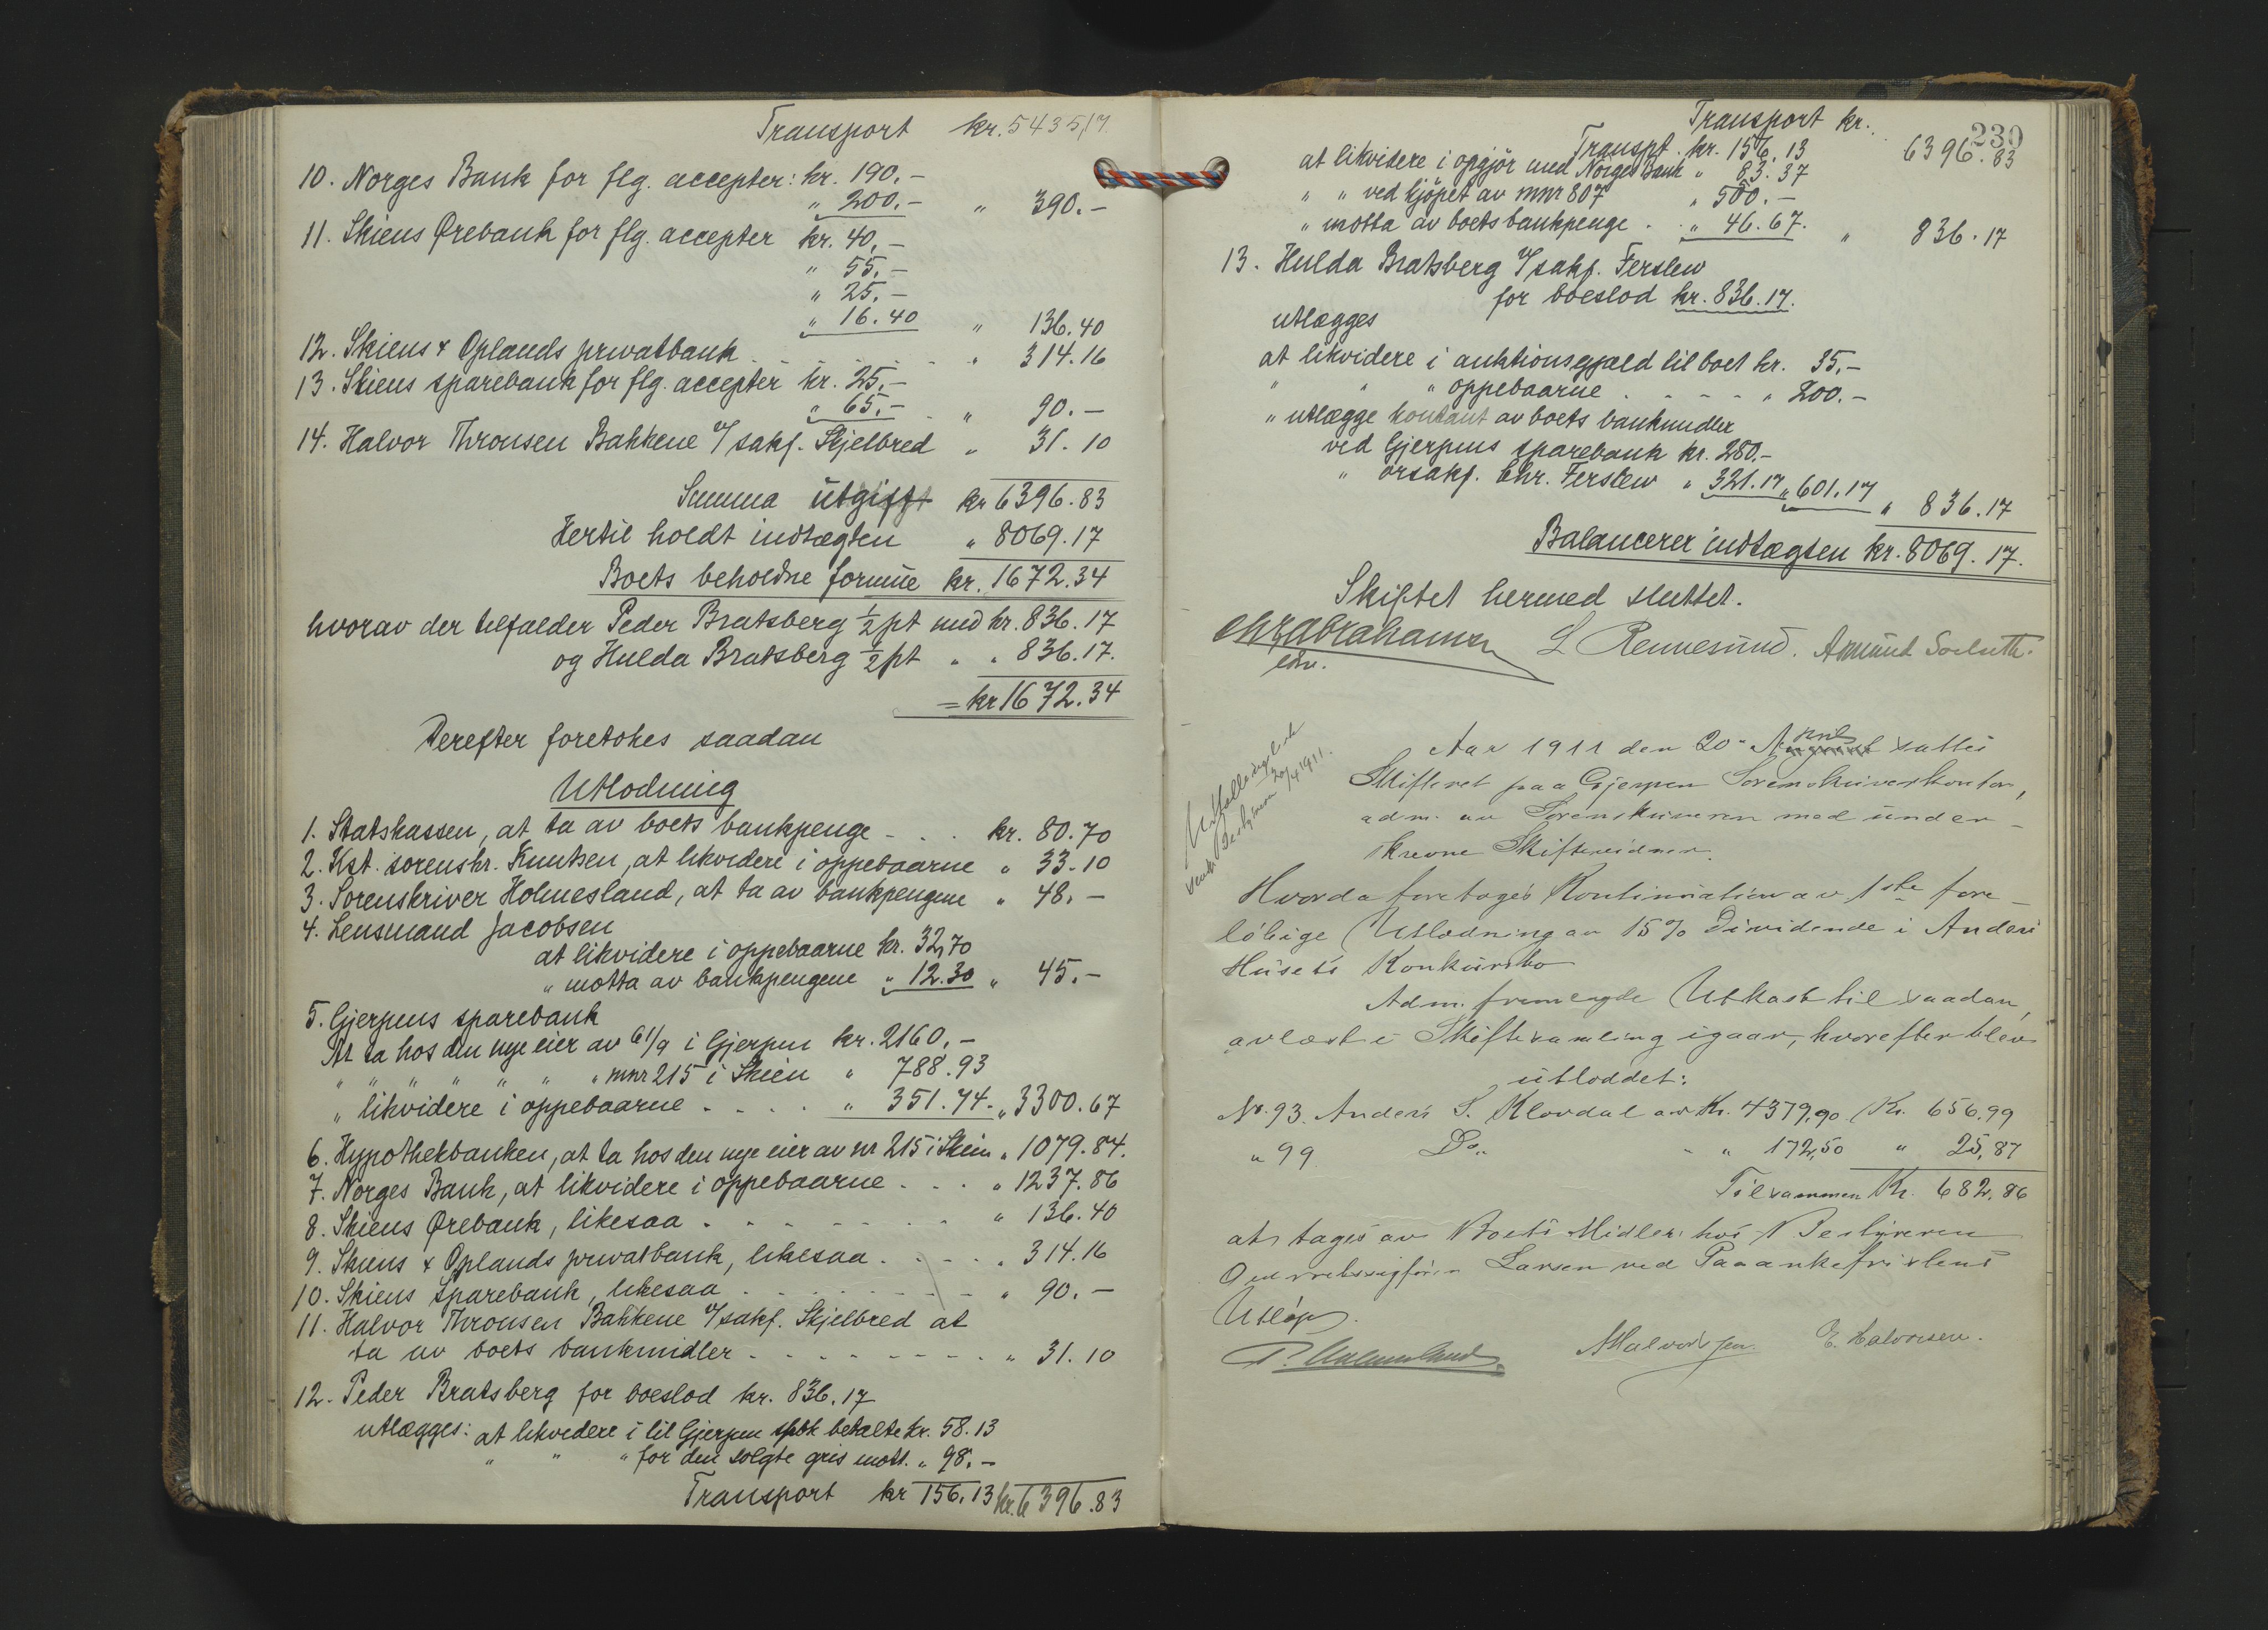 Transport kr. 5435,17.
10. Norges Bank for flg. accepter: kr. 190.-
" 200.- " 390.-
11. Skiens Ørebank for flg. accepter kr. 40,-
" 55.-
" 25.-
" 16.40 " 136.40
12. Skiens & Oplands privatbank . . . . . . . " 314.16
13. Skiens sparebank for flg. accepter kr. 25,-
" 65.- . " 90.-
14. Halvor Thronsen Bakkene v/ sakf. Skjelbred " 31.10
Summa utgift kr 6396.83
Hertil holdt indtægten " 8069.17
Boets beholdne formue kr. 1672.34
hvorav der tilfalder Peder Bratsberg ½ pt med kr. 836.17
og Hulda Bratsberg ½ pt " " 836.17.
= kr 1672.34
Derefter foretokes saadan
Utlodning
1. Statskassen, at ta av boets bankpenge - . . kr. 80.70
2. Kst. sorenskr. Knutsen, at likvidere i oppebaarne " 33.10
3. Sorenskriver Holmesland, at ta av bankpengene " 48.-
4. Lensmand Jacobsen
at likvidere i oppebaarne kr. 32,70
" motta av bankpengene " 12.30 " 45.-
5. Gjerpens sparebank
At ta hos den nye eier av 61/9 i Gjerpen kr. 2160.-
" " " " " " " mnr 215 i Skien " 788.93
" likvidere i oppebaarne . . . . " 351.74. " 3300.67
6. Hypothekbanken, at ta hos den nye eier av nr 215 i Skien " 1079.84.
7. Norges Bank, at likvidere i oppebaarne . . . " 1237.86
8. Skiens Ørebank, likesaa . . . . . . . . " 136.40
9. Skiens & Oplands privatbank, likesaa . . . . " 314.16
10. Skiens Sparebank, likesaa . . . . . . . . " 90.-
11. Halvor Thronsen Bakkene v/ sakf. Skjelbred at
ta av boets bankmidler . . . . . . . . " 31.10
12. Peder Bratsberg for boeslod kr. 836.17
utlægges: at likvidere i til Gjerpen spbk betalte kr. 58.13
" " " for den solgte gris mott. " 98.-
Transport kr 156.13 kr. 6396.83
230
Transport kr. 6396.83
Transpt. kr. 156.13
at likvidere i opgjör med Norges Bank " 83.37
" " ved kjöpet av mnr 807 " 500.-
" motta av boets bankpenge . . " 46.67. " 836.17
13. Hulda Bratsberg v/ sakf. Ferslew
for boeslod kr. 836.17.
utlægges
at likvidere i auktionsgjæld til boet kr. 35.-
" " " oppebaarne . . . . . " 200.-
" utlægge kontant av boets bankmidler
ved Gjerpens sparebank kr. 280.-
" orsakf. Chr. Ferslew " 321.17 " 601.17 " 836.17
Balancerer indtægten kr. 8069.17.
Skiftet hermed sluttet.
Chr Abrahamsen L Rennesund. Amund
Aar 1911 den 20- April sattes
Skifteret paa Gjerpen Sorenskriverkontor,
adm. av Sorenskriveren med under-
skrevne Skiftevidner.
20/4 1911.
Hvorda foretoges Kontinuation av 1ste fore-
løbige Utlodning av 15% Dividende i Anders
Husets Konkursbo
Adm. fremlagde Utkast til saadan,
avlæst i Skiftesamling igaar, hvorefter blev
utloddet:
No. 93. Anders S. Klovdal av Kr. 4379,90 Kr. 656.99
" 99 Do. " " 172,50 " 25,87
Tilsammen Kr. 682,86
at tages av Boets Midler hos Bestyreren
Overretssagfører Larsen ved Paaankefristens
Utløp.
P. Holmesland A Halvorsen E. Halvorsen.